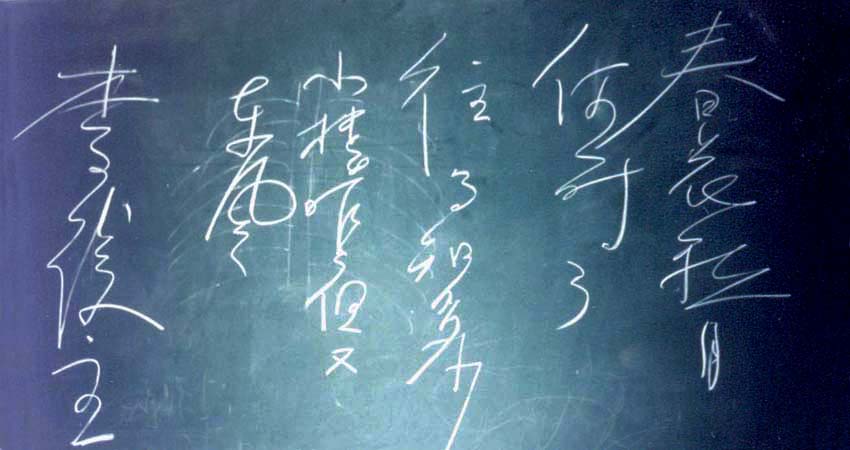 春花秋月
何时了
往事知多少
小楼昨夜又
东风
李後主